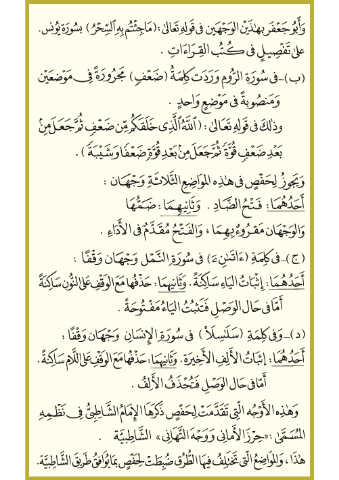 وَأَبُو جَعْفَر بهـٰذَيْن الوَجْهَين فى قَولِهِ تَعَالىٰ: ( مَا جِئْتُم بِهِ آلسِّحْرُ ) بسُورَةِ يُونُس .
علىٰ تَفْصِيلٍ فى كُتُبُ القِرَاءَاتِ .
(ب) - فى سُورَةِ الرُّومِ وَرَدَتْ كَلِمَةُ (ضَعْفٍ) مَجْرُورَةً فى مَوْضعَيْن
وَمَنْصُوبَةً فى مَوْضِعٍ وَاحِدٍ .
وذٰلكَ فى قَولِهِ تَعَالىٰ : ( ٱللَّهُ ٱلَّذِى خَلَقَكُم مِّن ضَعْفٍ ثُمَّ جَعَلَ مِنْ
بَعْدِ ضَعْفٍ قُوَّةً ثُمَّ جَعَلَ مِنْ بَعْدِ قُوَّةٍ ضَعْفًا وَشَيْبَةً ) .
وَيَجوزُ لِحَفْصٍ فى هـٰذِهِ المَوَاضِعِ الثَّلاثَةِ وَجْهَان :
أَحَدُهُمَا : فَـتْحُ الضَّادِ . وَثَانِيهِمَا : ضَمُّهَا
وَالوَجْهَان مَقْرُوءٌ بِهِمَا ، وَالفَتْحُ مُقَدَّمٌ فى الأَدَاءِ .
( ج ) - فى كَلِمَةِ ( ءَاتَىٰنِۦَ ) فى سُورَةِ النَّمْل وَجْهَان وَقْفًا :
أَحَدُهُمَا : إِثْبَاتُ اليَاءِ سَاكِنَةً . وَثَانِيهِمَا : حَذْفُهَا مَعَ الوَقْفِ عَلىٰ النُّون سَاكِنَةً
أَمَّا فى حَال الوَصْلِ فَتَثْبُتُ اليَاءُ مَفْـتُوحَةً .
( د ) - وَفى كَلِمَةِ ( سَلَـٰسِلَا۟ ) فى سُورَةِ الإِنسَانِ وَجْهَان وَقْفًا :
أَحَدُهُمَا : إِثبَاتُ الأَلِفِ الأَخِيرَةِ . وَثَانِيهِمَا : حَذْفُهَا مَعَ الوَقْفِ عَلىٰ اللَّامِ سَاكِنَةً .
أَمَّا فى حَال الوَصْلِ فَتُحْذَفُ الأَلِفُ .
وَهـٰذِهِ الأَوْجُه الَّتِى تَقَدَّمَتْ لِحَفْصٍ ذَكَرَهَا الإِمَامُ الشَّاطِبِيُّ فى نَظْمِهِ
المُسَمَّىٰ : «حِرْزَ الأَمَانِى وَوَجْهَ التَّهَانِى» الشَّاطِبِيَّة .
هٰذَا ، وَالمَوَاضِعُ الَّتِى تَخْتَلِفُ فِيهَا الطُّرُق ضُبِطَتْ لِحَفْصٍ بِمَا يُوَافِقُ طَرِيقَ الشَّاطِبِيَّة.